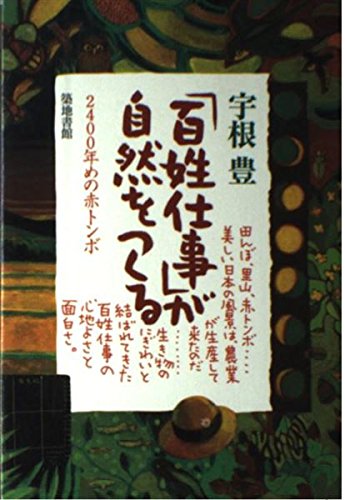 宇根 豊
「百姓仕事」が
自然をつくる
2400年めの赤トンボ
築地書館
田んぼ、里山、赤トンボ……
美しい日本の風景は、農業
が生産して
来たのだ
………
生き物の
にぎわいと
結ばれてきた
百姓仕事の
心地よさと
面白さ。